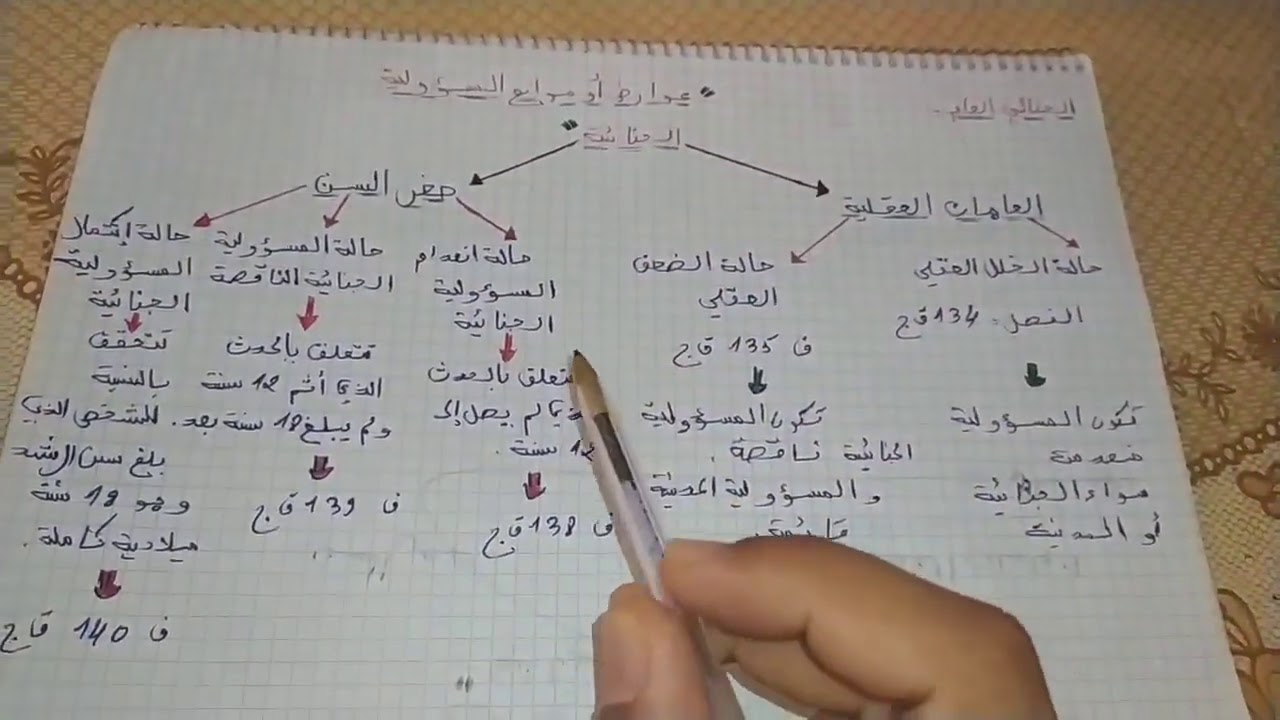 الجنائي العام.
عوارض أو موانع المسؤولية
الجنائية
العاهات العقلية
صغر السن
حالة الخلل العقلي
الفصل 134 ق ج
تكون المسؤولية
منعدمة
سواء الجنائية
أو المدنية
حالة الضعف
العقلي
ف 135 ق ج
تكون المسؤولية
الجنائية ناقصة.
والمسؤولية المدنية
قائمة
حالة انعدام
المسؤولية
الجنائية
تتعلق بالحدث
لم يصل إلى
12 سنة.
ف 138 ق ج
حالة المسؤولية
الجنائية الناقصة
تتعلق بالحدث
الذي أتم 12 سنة
ولم يبلغ 18 سنة بعد.
ف 139 ق ج
حالة إكتمال
المسؤولية
الجنائية
تتحقق
بالنسبة
للشخص الذي
بلغ سن الرشد
وهو 18 سنة
ميلادية كاملة.
ف 140 ق ج